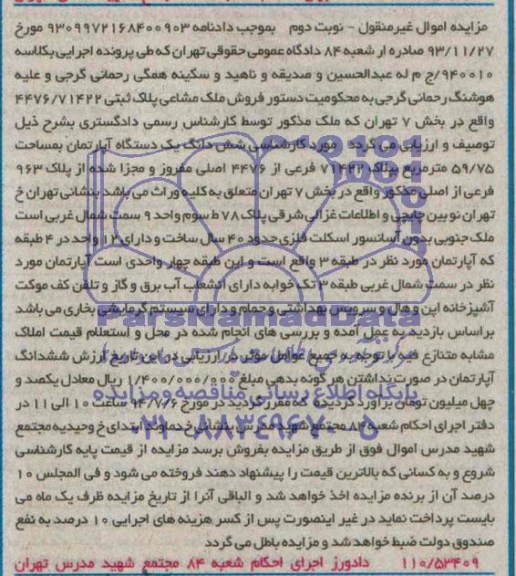 مزایده اموال غیرمنقول - نوبت دوم    بموجب دادنامه ۹۳۰۹۹۷۲۱۶۸۴۰۰۹۰۳ مورخ
۹۳/۱۱/۲۷ صادره از شعبه ۸۴ دادگاه عمومی حقوقی تهران که طی پرونده اجرایی بکلاسه
۹۴۰۰۱۰/ج م له عبدالحسین و صدیقه و ناهید و سکینه همگی رحمانی گرجی و علیه
هوشنگ رحمانی گرجی به محکومیت دستور فروش ملک مشاعی پلاک ثبتی ۴۴۷۶/۷۱۴۲۲
واقع در بخش ۷ تهران که ملک مذکور توسط کارشناس رسمی دادگستری بشرح ذیل
توصیف و ارزیابی می گردد    مورد کارشناسی شش دانگ یک دستگاه آپارتمان بمساحت
۵۹/۷۵ مترمربع بپلاک ۷۱۴۲۲ فرعی از ۴۴۷۶ اصلی مفروز و مجزا شده از پلاک ۹۶۳
فرعی از اصلی مذکور واقع در بخش ۷ تهران متعلق به کلیه وراث می باشد بنشانی تهران خ
تهران نو بین چایچی و اطلاعات غزالی شرقی پلاک ۷۸ ط سوم واحد ۹ سمت شمال غربی است
ملک جنوبی بدون آسانسور اسکلت فلزی حدود ۴۰ سال ساخت و دارای ۱۲ واحد در ۴ طبقه
که آپارتمان مورد نظر در طبقه ۳ واقع است و این طبقه چهار واحدی است آپارتمان مورد
نظر در سمت شمال غربی طبقه ۳ تک خوابه دارای انشعاب آب برق و گاز و تلفن کف موکت
آشپزخانه اپن و هال و سرویس بهداشتی و حمام و دارای سیستم گرمایشی بخاری می باشد
براساس بازدید به عمل آمده و بررسی های انجام شده در محل و استعلام قیمت املاک
مشابه متنازع فیه با توجه به جمیع عوامل موثر در ارزیابی در این تاریخ ارزش ششدانگ
آپارتمان در صورت نداشتن هر گونه بدهی مبلغ ۱/۴۰۰/۰۰۰/۰۰۰ ریال معادل یکصد و
چهل میلیون تومان برآورد گردیدی که مقرر گردید در مورخ ۹۴/۶/۶ ساعت ۱۰ الی ۱۱ در
دفتر اجرای احکام شعبه ۸۴ مجتمع شهید مدرس بنشانی خ دماوند ابتدای خ وحیدیه مجتمع
شهید مدرس اموال فوق از طریق مزایده بفروش برسد مزایده از قیمت پایه کارشناسی
شروع و به کسانی که بالاترین قیمت را پیشنهاد دهند فروخته می شود و فی المجلس ۱۰
درصد آن از برنده مزایده اخذ خواهد شد و الباقی آنرا از تاریخ مزایده ظرف یک ماه می
بایست پرداخت نماید در غیر اینصورت پس از کسر هزینه های اجرایی ۱۰ درصد به نفع
صندوق دولت ضبط خواهد شد و مزایده باطل می گردد
۱۱۰/۵۳۴۰۹    دادورز اجرای احکام شعبه ۸۴ مجتمع شهید مدرس تهران
ParsNamadData
پایگاه اطلاع رسانی مناقصه و مزایده
۰۲۱-۸۸۳۴۹۶۷۰-۵